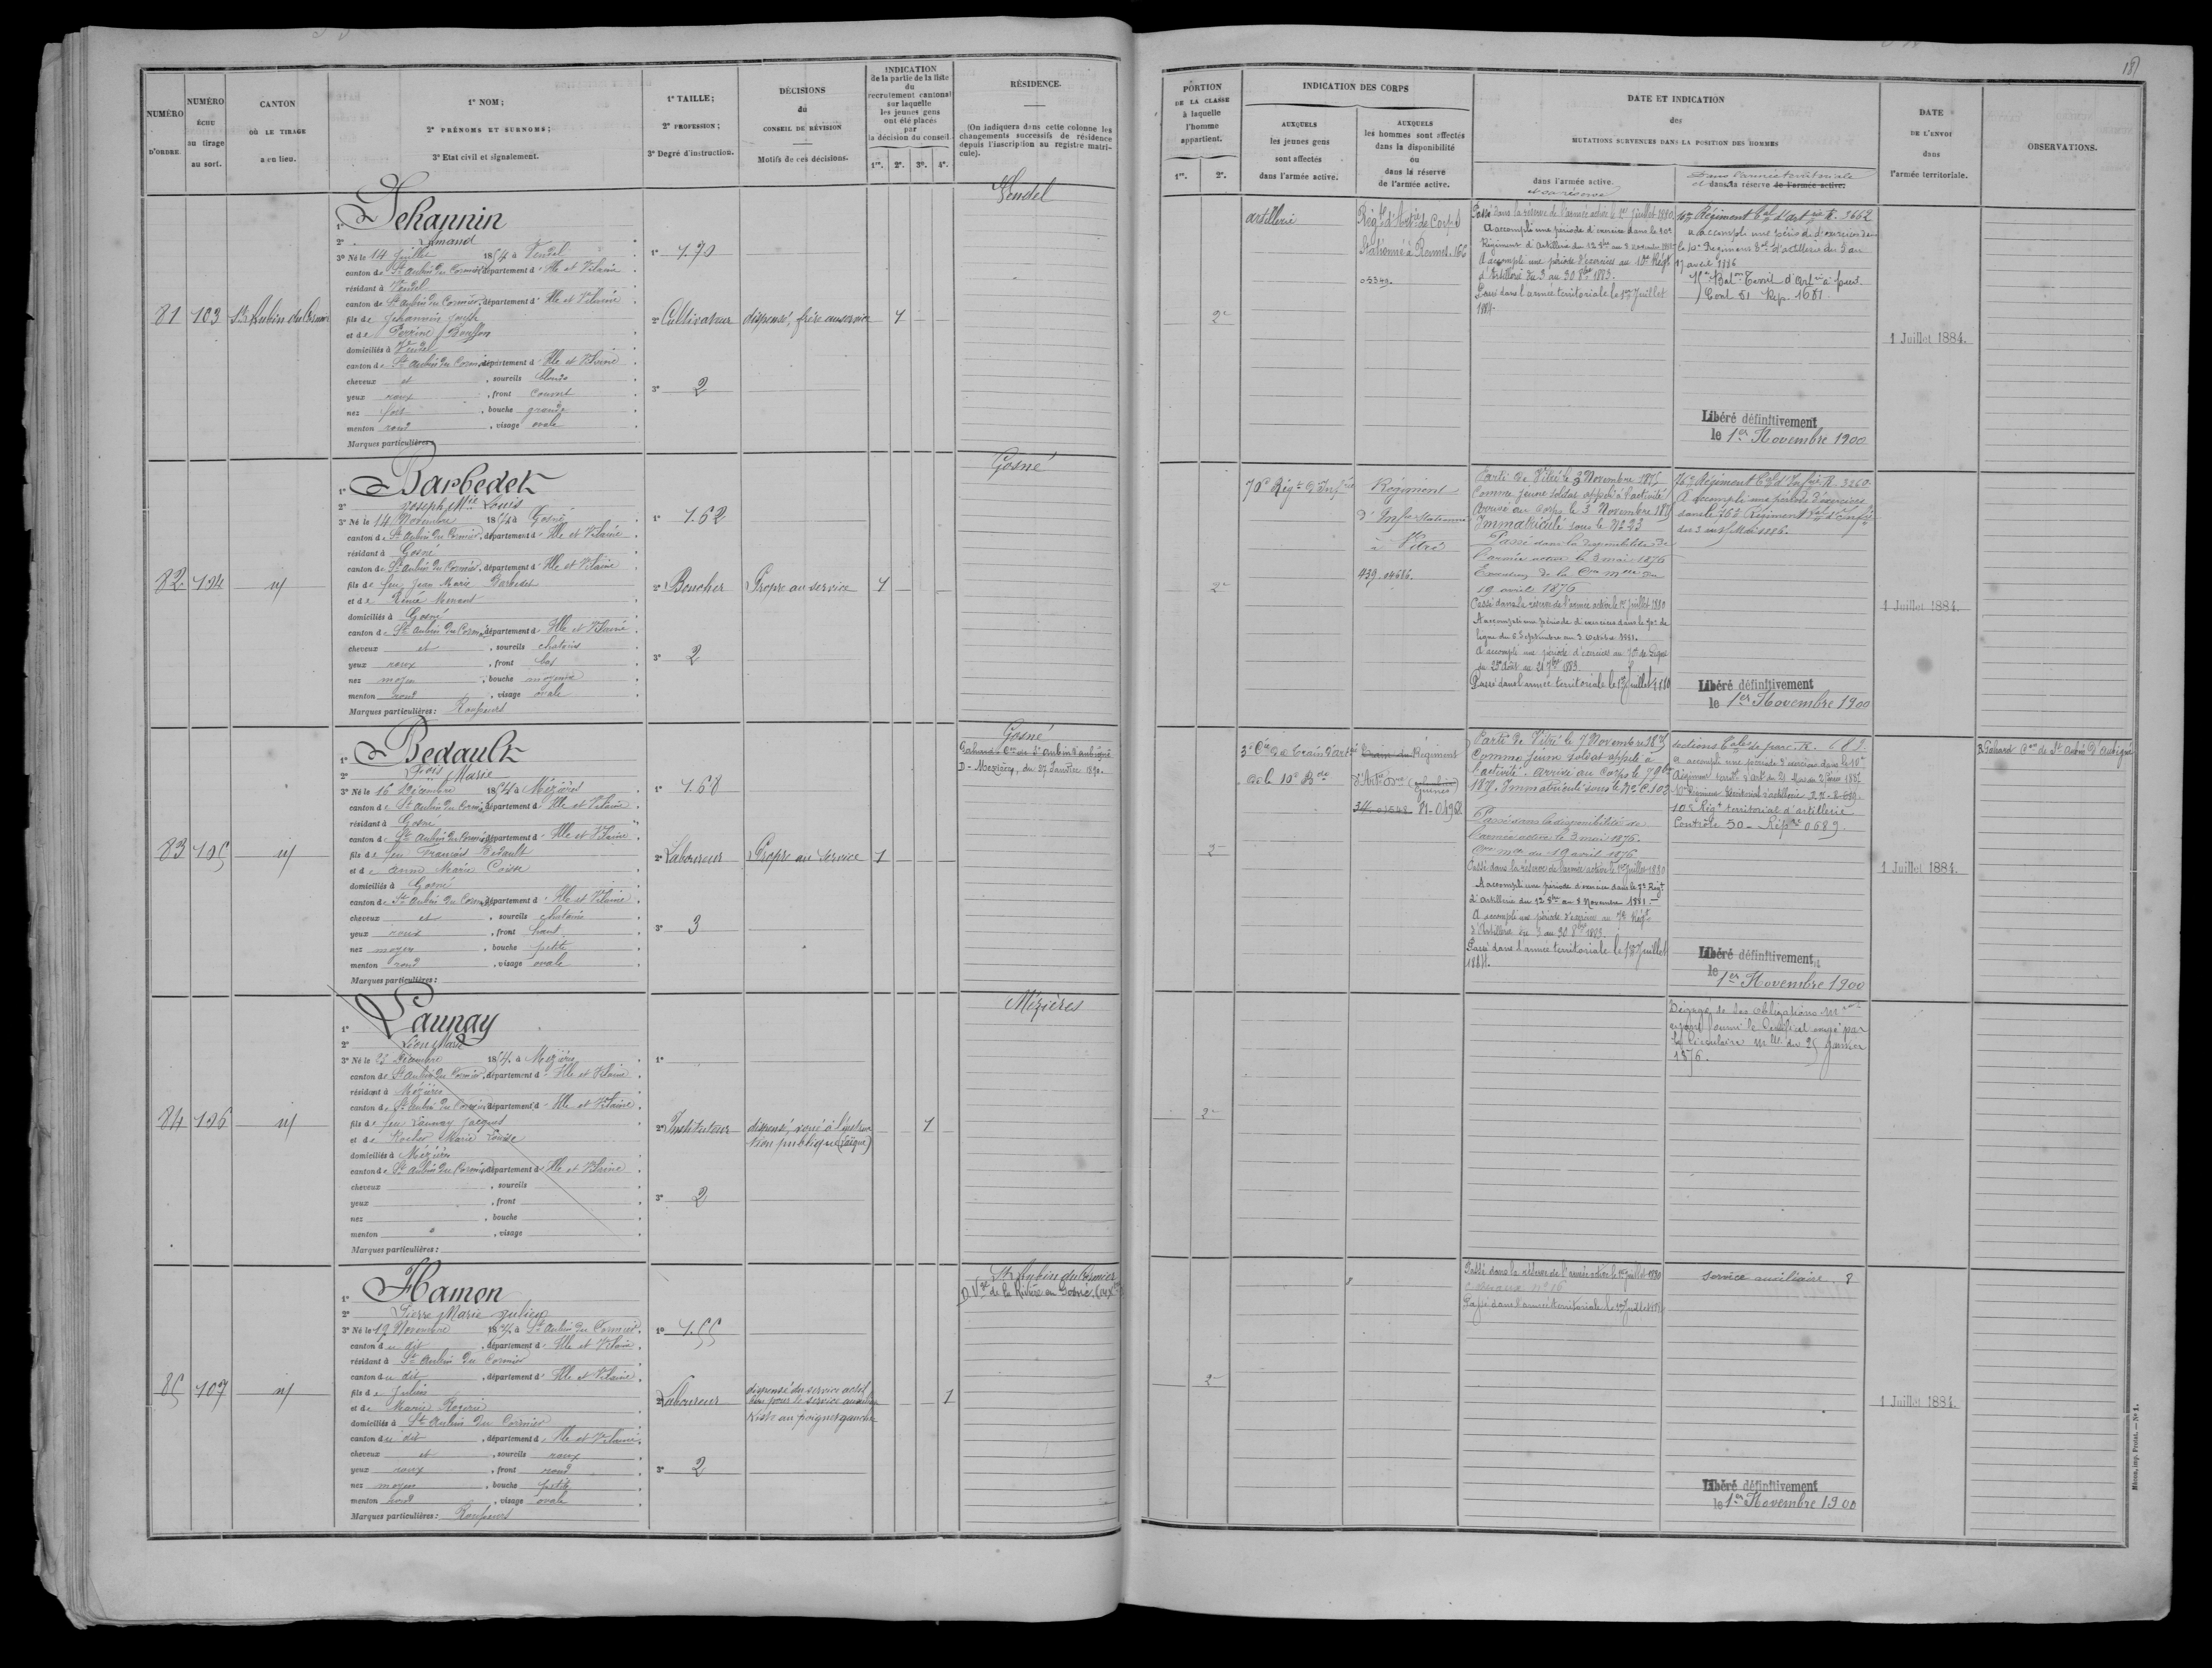 18
NUMÉRO D'ORDRE.
NUMÉRO ÉCHU au tirage au sort.
CANTON OÙ LE TIRAGE a eu lieu.
1° NOM;
2° PRÉNOMS ET SURNOMS;
3° Etat civil et signalement.
1° TAILLE;
2° PROFESSION;
3° Degré d'instruction.
DÉCISIONS du CONSEIL DE RÉVISION
Motifs de ces décisions.
INDICATION
de la partie de la liste
du
recrutement cantonal
sur laquelle
les jeunes gens
ont été placés
par
la décision du conseil.
1re. 2e. 3e. 4e.
RÉSIDENCE.
(On indiquera dans cette colonne les
changements successifs de résidence
depuis l'inscription au registre matri-
cule).
PORTION
DE LA CLASSE
à laquelle
l'homme
appartient.
1re. 2e.
INDICATION DES CORPS
AUXQUELS
les jeunes gens
sont affectés
dans l'armée active.
AUXQUELS
les hommes sont affectés
dans la disponibilité
ou
dans la réserve
de l'armée active.
DATE ET INDICATION
des
MUTATIONS SURVENUES DANS LA POSITION DES HOMMES
dans l'armée active.
et sa réserve
Dans l'armée territoriale
et dans la réserve de l'armée active.
DATE
DE L'ENVOI
dans
l'armée territoriale.
OBSERVATIONS.
81 103 St Aubin du Cormier
1° Jehannin
2° Armand
3° Né le 14 Juillet 1854 à Vendel
canton de St Aubin du Cormier, département d'Ille et Vilaine
résidant à Vendel
canton de St Aubin du Cormier, département d'Ille et Vilaine
fils de Jehannin Joseph
et de Perrine
domiciliés à Vendel
canton de St Aubin du Cormier, département d'Ille et Vilaine
cheveux et, sourcils blonds
yeux roux, front couvert
nez fort, bouche grande
menton rond, visage ovale
Marques particulières:
1° 1.70
2° Cultivateur
3° 2
dispensé, frère au service
1
Vendel
2e
artillerie
Régt d'Artie de Corps
Stationné à Rennes. 166
05349.
Passé dans la réserve de l'armée active le 1er Juillet 1880
A accompli une période d'exercice dans le 10e
Régiment d'Artillerie du 12 8bre au 8 novembre 1881
A accompli une période d'exercices au 10e Régt
d'Artillerie du 3 au 30 8bre 1883.
Passé dans l'armée territoriale le 1er Juillet
1884.
10e Régiment tal d'Artie R. 3662
a accompli une période d'exercices dans
le 10e Régiment d'artillerie du 5 au
17 avril 1886
Cont 51 Rép. 1681
1 Juillet 1884.
Libéré définitivement
le 1er Novembre 1900
82 104 id
1° Barbedet
2° Joseph Mie Louis
3° Né le 14 Novembre 1854 à Gosné
canton de St Aubin du Cormier, département d'Ille et Vilaine
résidant à Gosné
canton de St Aubin du Cormier, département d'Ille et Vilaine
fils de feu Jean Marie Barbedet
et de Renée
domiciliés à Gosné
canton de St Aubin du Cormier, département d'Ille et Vilaine
cheveux et, sourcils chatains
yeux roux, front bas
nez moyen, bouche moyenne
menton rond, visage ovale
Marques particulières: Rousseurs
1° 1.62
2° Boucher
3° 2
Propre au service
1
Gosné
2e
70e Régt d'Infie
Régiment
d'Infie Stationné
à Vitré
439-04686.
Parti de Vitré le 3 Novembre 1875
Comme jeune soldat appelé à l'activité
Arrivé au Corps le 3 Novembre 1875
Immatriculé sous le N° 23
Passé dans la disponibilité de
l'armée active le 3 mai 1876
Exécution de la Cre mlle du
19 avril 1876
Passé dans la réserve de l'armée active le 1er Juillet 1880
A accompli une période d'exercices dans le 70e de
ligne du 6 Septembre au 3 octobre 1881.
A accompli une période d'exercices au 70e de Ligne
du 25 Août au 21 7bre 1883.
Passé dans l'armée territoriale le 1er Juillet 1880
76e Régiment tal d'Infie R. 3260
A accompli une période d'exercices
dans le 76e Régiment tal d'Infie
du 3 au 15 Mai 1886.
1 Juillet 1884.
Libéré définitivement
le 1er Novembre 1900
83 105 id
1° Bedault
2° Fçois Marie
3° Né le 16 Décembre 1854 à Mézières
canton de St Aubin du Cormier, département d'Ille et Vilaine
résidant à Gosné
canton de St Aubin du Cormier, département d'Ille et Vilaine
fils de feu François Bedault
et de Anne Marie
domiciliés à Gosné
canton de St Aubin du Cormier, département d'Ille et Vilaine
cheveux et, sourcils chatains
yeux roux, front haut
nez moyen, bouche petite
menton rond, visage ovale
Marques particulières:
1° 1.68
2° Laboureur
3° 3
Propre au Service
1
Gosné
Gahard Con de St Aubin d'Aubigné
D - Mézières, du 27 Janvier 1890.
2e
3e Cie du Train d'artie
de la 10e Bde
Train du Régiment
d'Artie
34-01548 21-01968
Parti de Vitré le 7 Novembre 1875
Comme jeune soldat appelé à
l'activité. arrivé au Corps le 7 9bre
1875. Immatriculé sous le N° C.103
Passé dans la disponibilité de
l'armée active le 3 mai 1876.
Cre mlle du 19 avril 1876
Passé dans la réserve de l'armée active le 1er Juillet 1880
A accompli une période d'exercice dans le 7e Régt
d'Artillerie du 12 8bre au 8 Novembre 1881.
A accompli une période d'exercices au 7e Régt
d'Artillerie du 3 au 30 8bre 1883.
Passé dans l'armée territoriale le 1er Juillet
1884.
sections tales de parc. R. 682.
A accompli une période d'exercices dans le 10e
10e Régt territorial d'artillerie
Contrôle 50 - Répre 0689.
1 Juillet 1884.
R Gahard Con de St Aubin d'Aubigné
Libéré définitivement
le 1er Novembre 1900
84 106 id
1° Launay
2° Léon Marie
3° Né le 23 Décembre 1854 à Mézières
canton de St Aubin du Cormier, département d'Ille et Vilaine
résidant à Mézières
canton de St Aubin du Cormier, département d'Ille et Vilaine
fils de feu Launay Jacques
et de Rocher Marie Louise
domiciliés à Mézières
canton de St Aubin du Cormier, département d'Ille et Vilaine
cheveux, sourcils
yeux, front
nez, bouche
menton, visage
Marques particulières:
1°
2° Instituteur
3° 2
dispensé, voué à l'instruc
tion publique (laïque)
1
Mézières
2e
Dégagé de ses obligations
ayant fourni le Certificat exigé par
la Circulaire mlle du 25 Janvier
1876.
85 107 id
1° Hamon
2° Pierre Marie Julien
3° Né le 19 Novembre 1854 à St Aubin du Cormier
canton du dit, département d'Ille et Vilaine
résidant à St Aubin du Cormier
canton du dit, département d'Ille et Vilaine
fils de Julien
et de Marie Rogerie
domiciliés à St Aubin du Cormier
canton du dit, département d'Ille et Vilaine
cheveux et, sourcils roux
yeux roux, front rond
nez moyen, bouche petite
menton rond, visage ovale
Marques particulières: Rousseurs
1° 1.55
2° Laboureur
3° 2
dispensé du service actif
bon pour le service auxiliaire
Kiste au poignet gauche
1
St Aubin du Cormier
2e
Passé dans la réserve de l'armée active le 1er Juillet 1880
Passé dans l'armée territoriale le 1er Juillet 1884
Service auxiliaire. 8
1 Juillet 1884.
Libéré définitivement
le 1er Novembre 1900